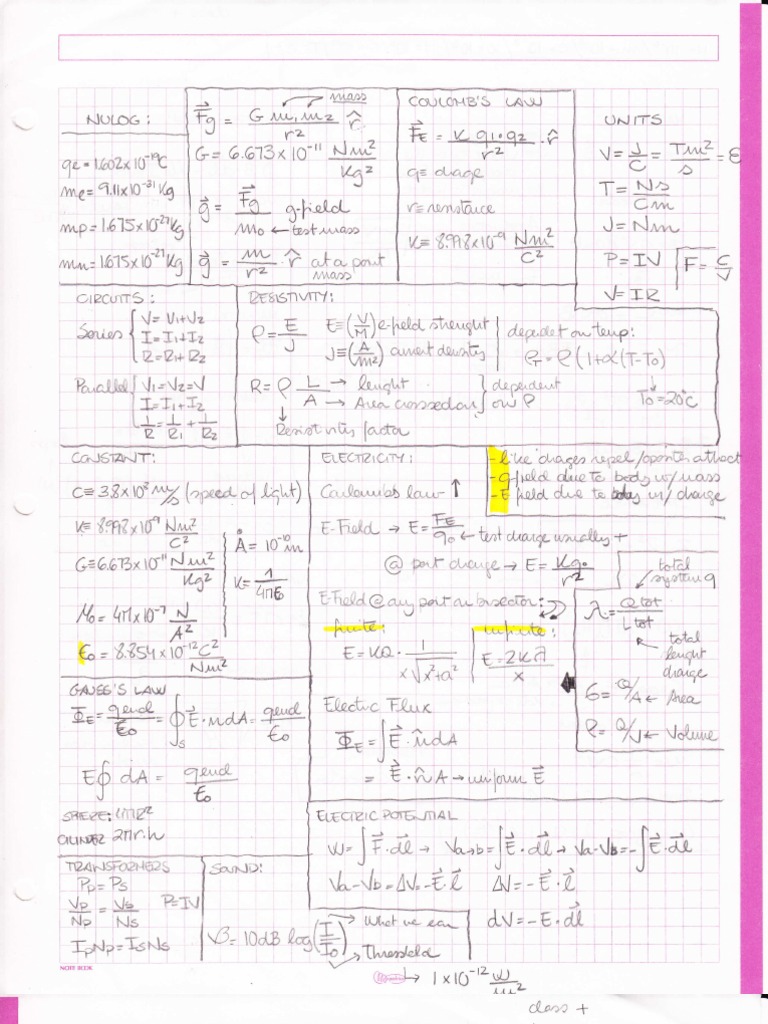 NULOG:
qe = 1.602x10⁻¹⁹C
me = 9.11x10⁻³¹ Kg
mp = 1.675x10⁻²⁷ Kg
mn = 1.675x10⁻²⁷ Kg
mass
F⃗g = G m₁ m₂ / r² r̂
G = 6.673x10⁻¹¹ Nm²/Kg²
g⃗ = F⃗g / m₀ g-field
← test mass
g⃗ = m / r² · r̂ at a point
mass
COULOMB'S LAW
F⃗E = K q₁·q₂ / r² · r̂
q≡ charge
r≡ resistance
K≡ 8.998x10⁻⁹ Nm²/C²
UNITS
V = J/C = Tm²/s = ε
T = Ns/Cm
J = Nm
P = IV
F = C/V
V = IR
CIRCUITS:
Series
V = V₁+V₂
I = I₁+I₂
R = R₁+R₂
Parallel
V₁ = V₂ = V
I = I₁+I₂
1/R = 1/R₁ + 1/R₂
RESISTIVITY:
ρ = E/J
E≡(V/M) e-field strenght
J≡(A/m²) current density
dependet on temp:
ρT = ρ(1+α(T-T₀)
T₀ = 20°C
R = ρ L/A
→ lenght
→ Area crossection
dependent
on ρ
Resistivity factor
CONSTANT:
C≡ 3.8x10⁸ m/s (speed of light)
K≡ 8.998x10⁻⁹ Nm²/C²
G≡6.673x10⁻¹¹ Nm²/Kg²
Å = 10⁻¹⁰ m
K = 1/4πε
μ₀ = 4π x10⁻⁷ N/A²
ε₀ = 8.854x10⁻¹² C²/Nm²
ELECTRICITY:
-like charges repel/oposites attract
-g-field due to body w/mass
-E field due to body w/ charge
Coulombs law ↑
E-Field → E = FE/q₀ ← test charge usually +
@ point charge → E = Kq₀/r²
E-Field @ any point on bisector:
finite:
E = KQ · 1/x√x²+a²
infinite:
E = 2Kλ/x
total
system q
λ = Q tot / L tot
total
lenght
charge
σ = Q/A ← Area
ρ = Q/V ← Volume
GAUSS'S LAW
ΦE = qencl/ε₀ = ∮s E⃗·n dA = qencl/ε₀
E∮ dA = qencl/ε₀
SPHERE: 4πR²
CILINDER 2πr.h
Electric Flux
Φ⃗E = ∫E⃗·n̂ dA
= E⃗·n̂ A → uniform E⃗
ELECTRIC POTENTIAL
W = ∫F⃗·dl⃗ → Va→b = ∫E⃗·dl⃗ → Va-Vb = -∫E⃗·dl⃗
Va-Vb = ΔV = -E⃗·l⃗ ΔV = -E⃗·l⃗
dV = -E·dl⃗
TRANSFORMERS
Pp = Ps
Vp/Np = Vs/Ns P = IV
IpNp = IsNs
SOUND:
β = 10dB log(I/I₀)
→ What we ear
→ Threshold
→ 1x10⁻¹² W/m²
NOTE BOOK
class +